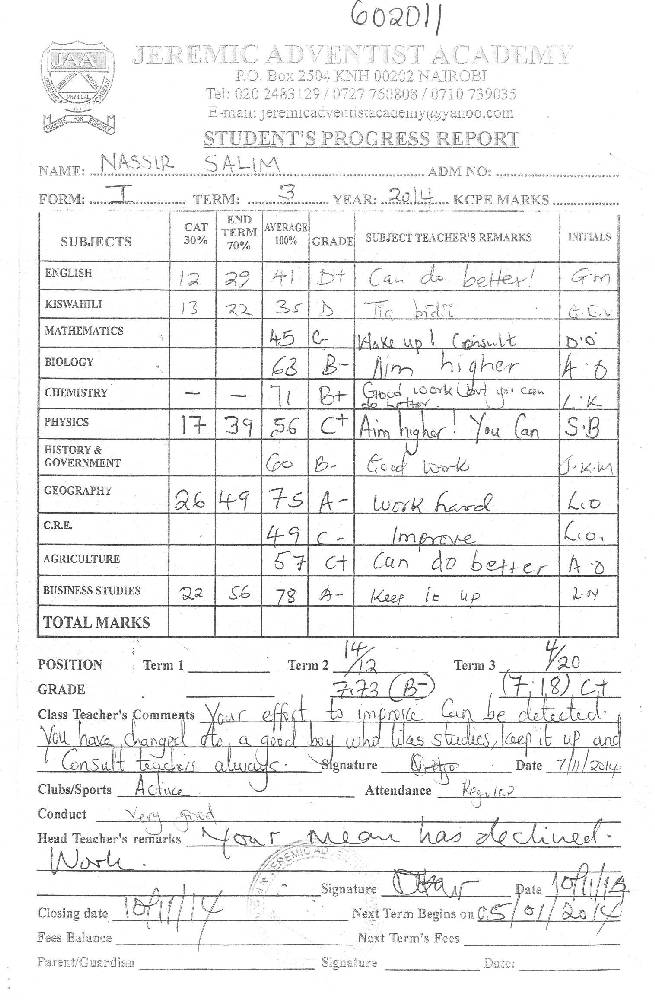 602011
JAA
JEREMIC ADVENTIST ACADEMY
P.O. Box 2504 KNH 00202 NAIROBI
Tel: 020 2483129 / 0727 760808 / 0710 739035
E-mail: jeremicadventistacademy@yahoo.com
STUDENT'S PROGRESS REPORT
NAME: NASSIR SALIM ADM NO:
FORM: I TERM: 3 YEAR: 2014 KCPE MARKS
SUBJECTS CAT 30% END TERM 70% AVERAGE 100% GRADE SUBJECT TEACHER'S REMARKS INITIALS
ENGLISH 12 29 41 D+ Can do better! G.m
KISWAHILI 13 22 35 D Tia bidii
MATHEMATICS 45 C- Wake up! Consult D.O
BIOLOGY 63 B- Aim higher A.O
CHEMISTRY — — 71 B+ Good work but you can do better. L.K
PHYSICS 17 39 56 C+ Aim higher! You Can S.B
HISTORY & GOVERNMENT 60 B- Good work J.K.M
GEOGRAPHY 26 49 75 A- work hard L.O
C.R.E. 49 C- Improve L.O.
AGRICULTURE 57 C+ Can do better A.O
BUSINESS STUDIES 22 56 78 A- Keep it up L.N
TOTAL MARKS
POSITION Term 1 Term 2 14/12 Term 3 4/20
GRADE 7.73 (B-) (7.18) C+
Class Teacher's Comments Your effort to improve Can be detected.
You have changed to a good boy who likes studies, keep it up and
Consult teachers always. Signature Date 7/11/2014
Clubs/Sports Active Attendance Regular
Conduct Very good
Head Teacher's remarks Your mean has declined.
Work.
JEREMIC AD
Signature Date 10/11/14
Closing date 10/11/14 Next Term Begins on 05/01/2014
Fees Balance Next Term's Fees
Parent/Guardian Signature Date: